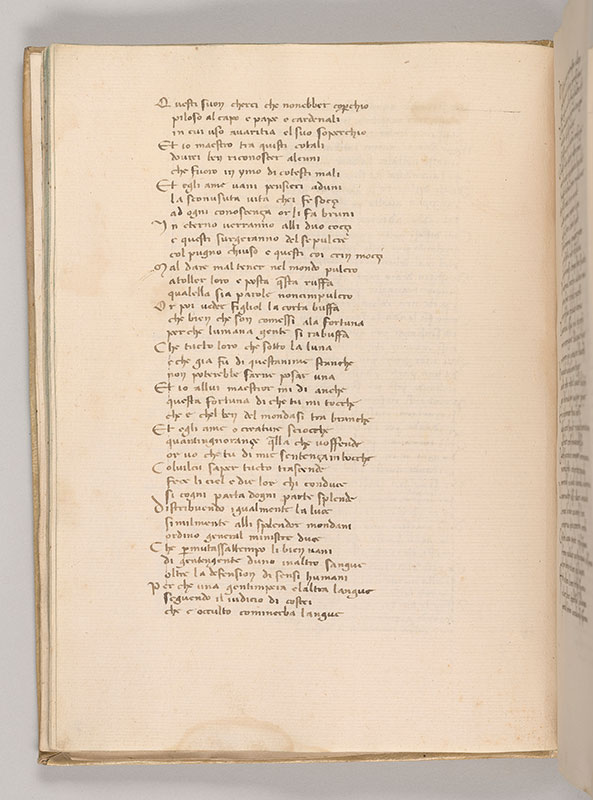 Questi fuon cherci che nonebber coperchio
piloso al capo e pape e cardenali
in cui uso auaritia el suo soperchio
Et io maestro tra questi cotali
dourei ben riconoscer alcuni
che furo in ymo di cotesti mali
Et egli ame uani pensieri aduni
la sconusuta uita chei fe sozi
ad ogni conoscenza or li fa bruni
In eterno uerranno alli duo cozi
e questi surgeranno del sepulcre
col pugno chiuso e questi coi crin mozi
Mal dare mal tener nel mondo pulcro
a toller loro e posta questa ruffa
qualella sia parole noncimpulcro
Or poi ueder figliol la corta buffa
che bien che son comessi ala fortuna
per che lumana gente si rabuffa
Che tucto loro che sotto la luna
e che gia fu di questanime stanche
non poterebbe farne posar una
Et io allui maestror mi di anche
questa fortuna di che tu mi tocche
che e chel ben del mondasi tra branche
Et egli ame o creature sciocche
quantingnoranze quella che uoffende
or uo che tu di mie sentenza intocche
Colui lcui saper tucto trascende
fece li ciel e die lor chi conduce
si cogni parta dogni parte splende
Distribuendo igualmente la luce
similmente alli splendor mondani
ordino general ministre duce
Che permutassaltempo li bien uani
di gentengente duno inaltro sangue
oltre la defension di sensi humani
Per che una gentimpera elaltra langue
seguendo il iudicio di costei
che e occulto cominerba langue